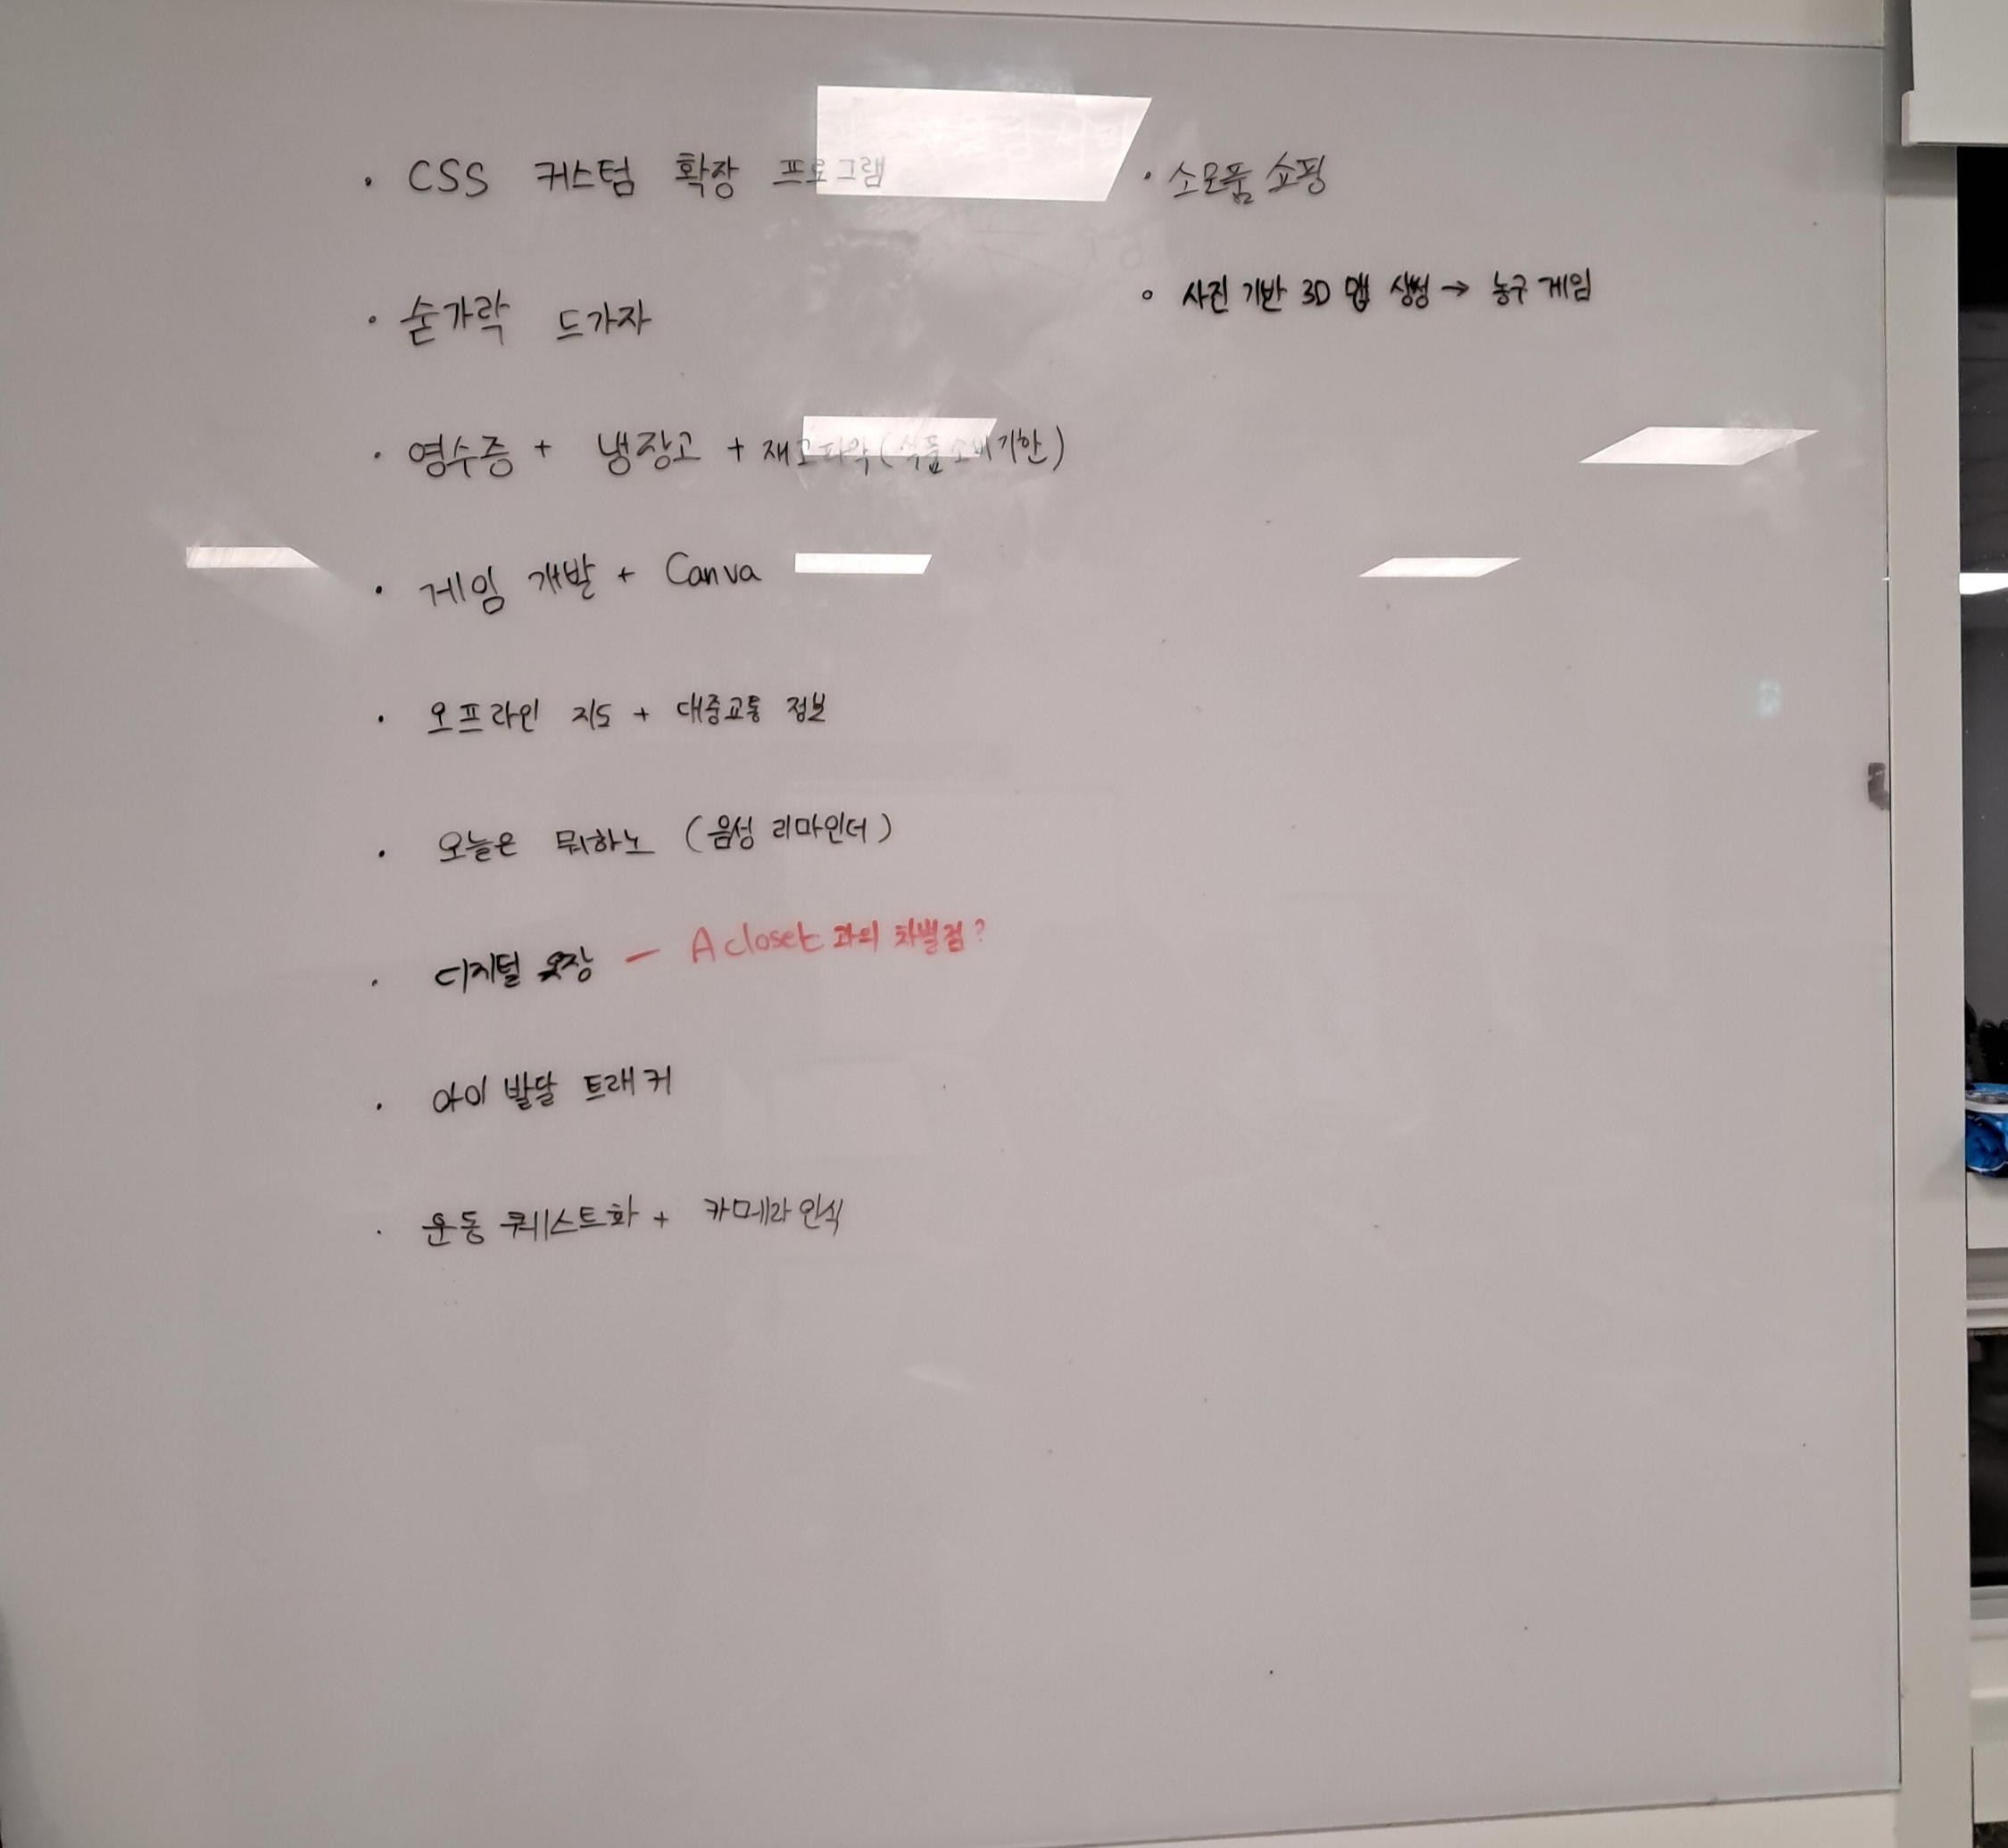 · CSS 커스텀 확장 프로그램
· 숟가락 드가자
· 영수증 + 냉장고 + 재고파악 (식품소비기한)
· 게임 개발 + Canva
· 오프라인 지도 + 대중교통 정보
· 오늘은 뭐하노 (음성 리마인더)
· 디지털 옷장 — Acloset과의 차별점?
· 아이 발달 트래커
· 운동 퀘스트화 + 카메라 인식
· 소모품 쇼핑
∘ 사진 기반 3D 맵 생성 → 농구 게임